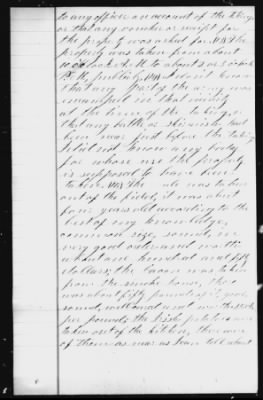 to any officer on account of the taking
or that any voucher or receipt for
the property was asked for, the
property was taken from about
10 o'clock A.M. to about 2 o'clock
P.M. publicly, I do not know
that any part of the army was
encamped in that vicinity
at the time of the taking,
that any battle or skirmish had
been near just before the taking
I did not know any body
for whose use the property
is supposed to have been
taken, the mule was taken
out of the field; it was about
four years old according to the
best of my knowledge,
common size, sound, in
very good order and worth
about one hundred and fifty
dollars; the bacon was taken
from the smoke house, there
was about fifty pounds of it, good
sound, well and worth
per pound; the Irish potatoes were
taken out of the kitchen, there were
of them as near as I can tell about